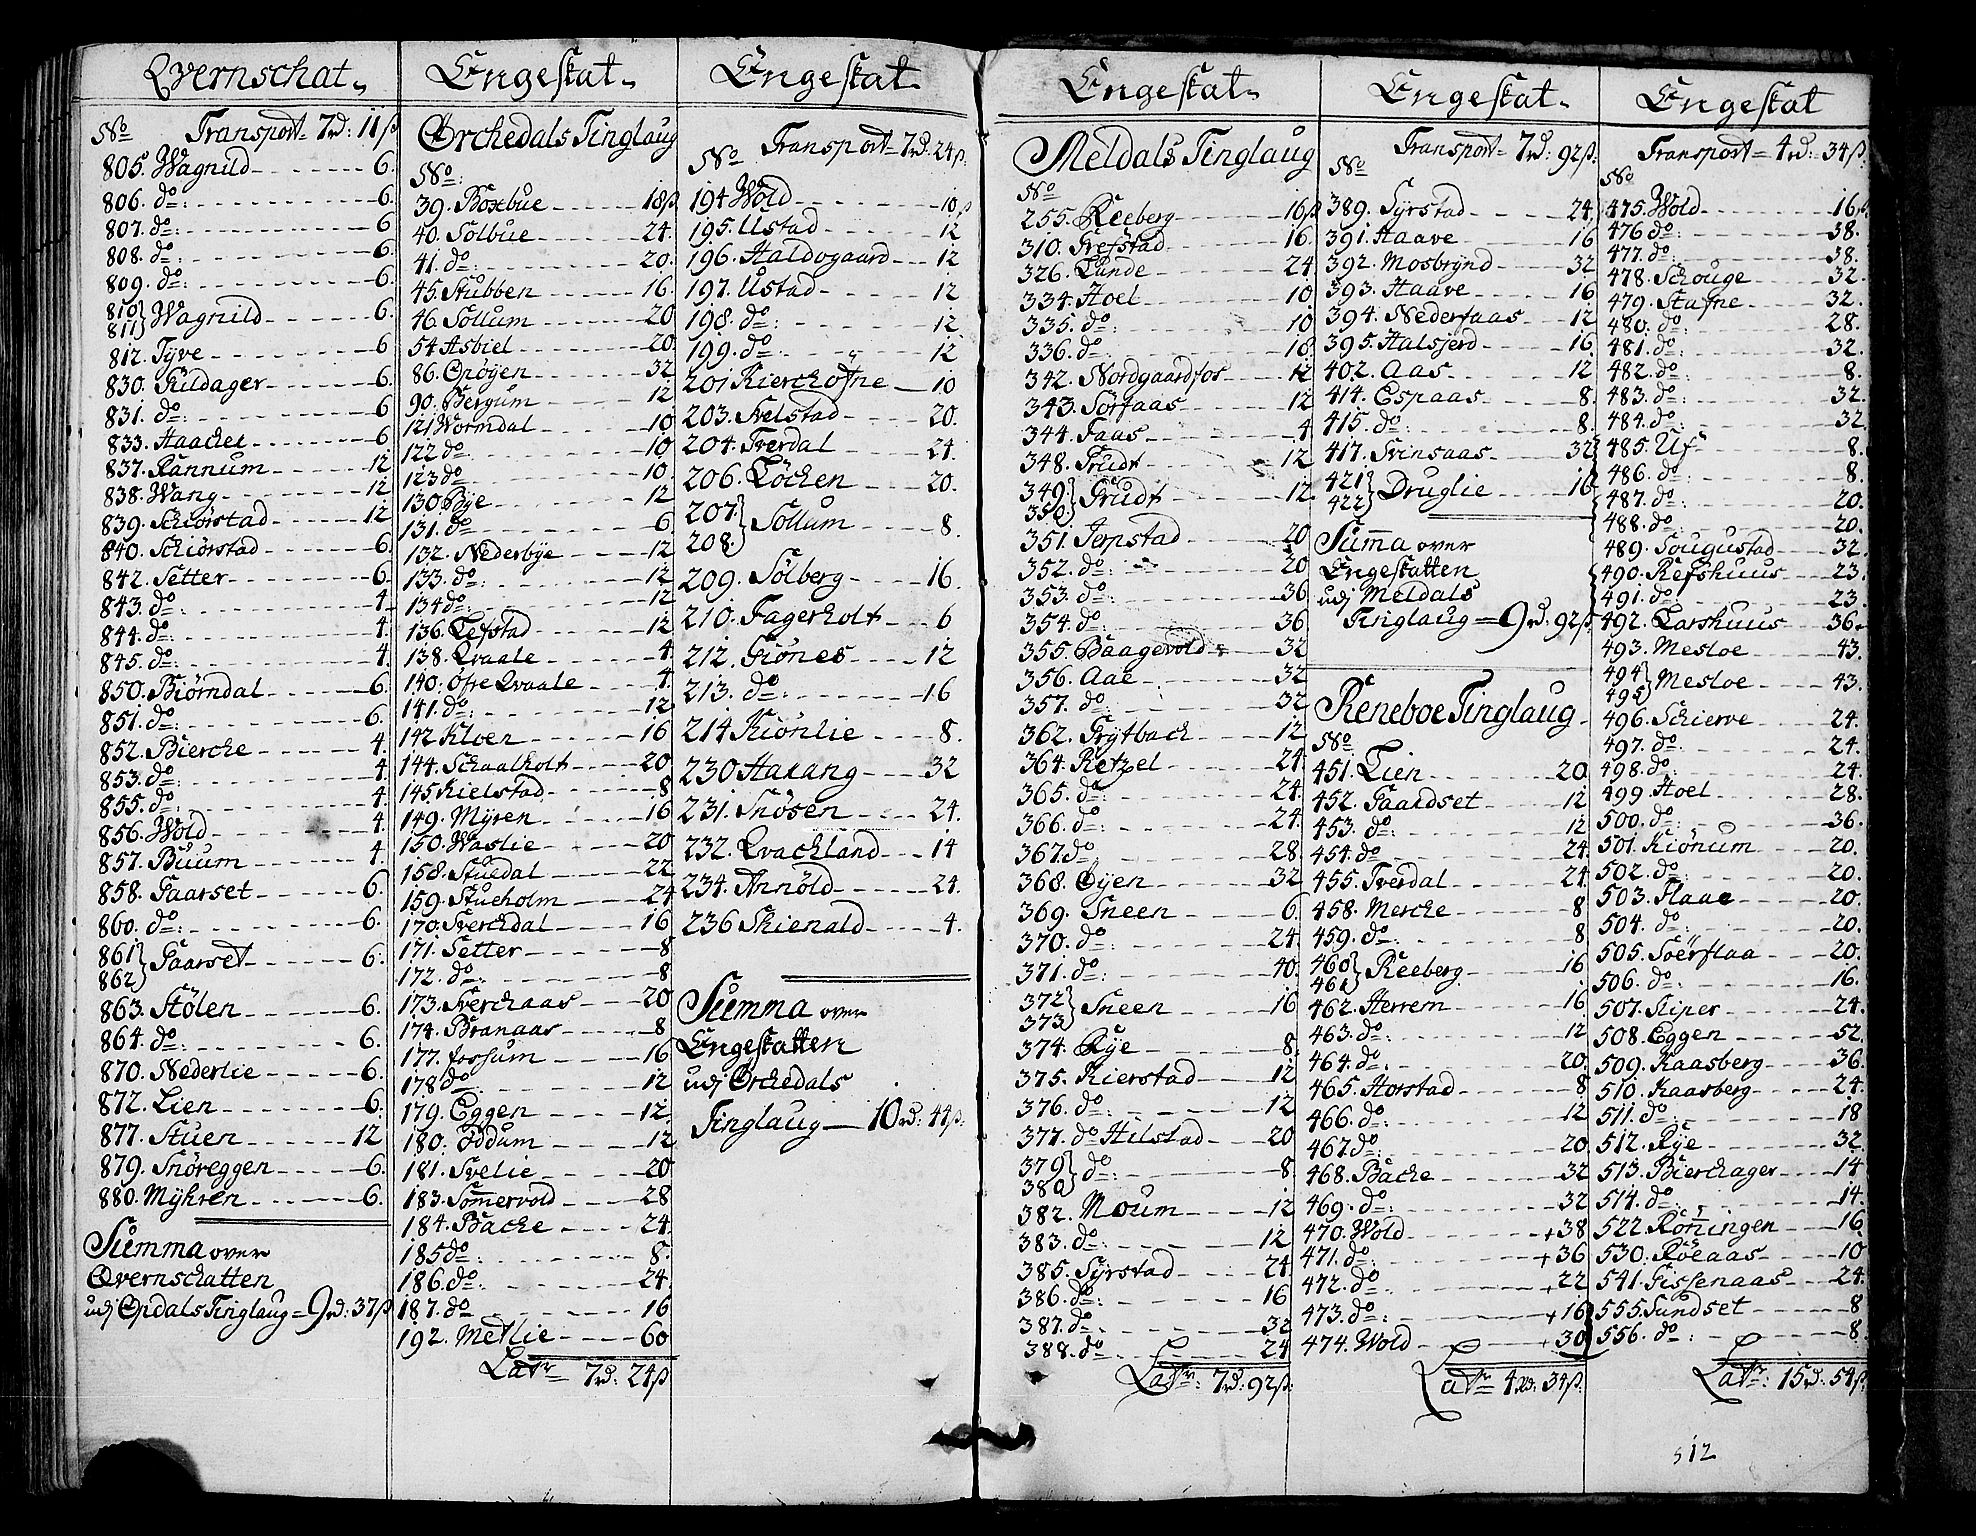 Qvernschat
No Transport 7rd: 11ß
805. Wagnild 6.
806. do: 6.
807. do: 6
808. do: 6.
809. do: 6.
810 } 811 } Wagnild 6.
812. Tÿve 6
830. Kuldager 6.
831. do: 6
833. Haacher 6
837. Rannum 12
838. Wang 12
839. Schiørstad 12
840. Schiørstad 6.
842. Setter 6
843. do: 4.
844. do: 4.
845. do: 4.
850. Biørndal 6.
851. do: 6.
852. Bierche 4.
853. do: 4
855. do: 4
856. Wold 4.
857. Buum 4.
858. Gaarset 6.
860. do: 6.
861 } 862 } Gaarset 6.
863. Stölen 6.
864. do: 6.
870. Nederlie 6.
872. Lien 6.
877. Stuen 12
879. Snöreggen 6.
880. Mÿhren 6.
Summa over
Qvernschatten
udj Opdals Tinglaug = 9rd: 37ß
Engeskat
Orchedals Tinglaug
No:
39. Boxbue 18ß
40. Solbue 24.
41. do: 20.
45. Stubben 16.
46. Sollum 20
54 Asbiel 20
86. Onöyen 32
90. Bergum 12
121 Wormdal 10
122 do: 10
123 do: 10
130 Bÿe 12
131. do: 6
132. Nederbÿe 12
133. do: 12
134 do: 12
136. Lefstad 12
138. Qvaale 4
140. öfre Qvaale 4.
141. do: 12
142 Kloen 16
144. Schaalholt 20
145 Kielstad 8
149. Mÿren 16
150. Waslie 20
158. Stuedal 22
159. Stueholm 24
170. Sverchdal 16
171. Setter 8
172. do: 8
173. Sverchaas 20
174. Branaas 8
177. fossum 16
178 do: 12
179. Eggen 12.
180. Oddum 12
181. Svelie 20
183. Sommervold 28
184. Bache 24.
185 do: 8.
186. do: 24.
187. do: 16
192. Metlie 60
Latr 7rd: 24ß
Engeskat
No Transport 7rd: 24ß.
194 Wold 10ß
195. Ustad 12
196. Haldogaard 12
197. Ustad 12
198. do: 12
199. do: 12
201 Kierchofne 10
203. Svelstad 20.
204. Tverdal 24.
206. Löchen 20.
207. } 208. } Sollum 8.
209. Sölberg 16.
210. Fagerholt 6
212. Giönes 12
213. do: 16
214 Kiönlie 8.
230 Harang 32
231. Snösen 24.
232. Qvachland 14
234. Annöld 24.
236 Skienald 4.
Summa over
Engeskatten
udj Orchedals
Tinglaug 10rd: 44ß.
Engeskat
Meldals Tinglaug
No
255. Reeberg 16ß
310. Grefstad 16.
326. Lunde 24
334. Hoel 10
335. do: 10
336. do: 10
342. Nordgaardfos 12
343. Sörfaas 12
344. Faas 4
348. Grudt 12
349 } 350 } Grudt 12
351. Jerpstad 20
352. do: 20
353. do: 36
354. do: 36
355. Baagevold 32
356. Aae 32
357. do: 32
362. Frÿtbach 12
364. Retzel 24.
365. do: 24.
366. do: 24.
367. do: 28
368. Oÿen 32
369. Sneen 6.
370. do: 24.
371. do: 40.
372 } 373 } Sneen 16
374. Rÿe 8.
375. Kierstad 12
376. do: 12
377. do Hilstad 20
379 } 380 } do: 8
382. Moum 12
383. do: 12
385. Sÿrstad 24
386. do: 16
387. do: 32
388. do: 24
Latr: 7rd: 92ß:
Engeskat
No Transport 7rd: 92ß.
389. Sÿrstad 24.
391. Haave 16
392. Mosbrÿnd 32
393. Haave 16
394. Nederfaas 12
395. Halsjerd 16
402. Aas 12
414. Espaas 8
415. do: 8.
417. Svinsaas 32
421 } 422 } Druglie 16
Summa over
Engeskatten
udj Meldals
Tinglaug 9rd: 92ß.
Reneboe Tinglaug
No
451. Lien 20
452. Gaardset 12
453. do: 12
454. do: 24.
455. Tverdal 24
458. Merche 8
459. do: 8
460 } 461 } Reeberg 16
462. Herrem 16
463. do: 12
464. do: 20.
465. Horstad 8
466. do: 12
467 do: 20.
468. Bache 32
469. do: 32
470. Wold +38
471. do: +36
472. do: 22
473. do: +16
474. Wold +30
Latr 4rd: 34ß.
Engeskat
Transport 4rd: 34ß
No
475. Wold 16ß
476 do: 38.
477. do: 38.
478. Schouge 32.
479. Stafne 32.
480. do: 28.
481. do: 32.
482. do: 8.
483. do: 32.
484. do: 32.
485. Uf 8.
486. do: 8.
487. do: 20.
488. do: 20.
489. Sougustad 32.
490. Refshuus 23.
491. do: 23.
492. Larshuus 36.
493. Mesloe 43.
494 } 495 } Mesloe 43.
496. Schierve 24.
497. do: 24.
498. do: 24.
499 Hoel 28.
500. do: 36.
501. Kiönum 20.
502. do: 20.
503. Flaae 20.
504. do: 20.
505. Soërflaa 20.
506. do: 16.
507. Kiper 24.
508. Eggen 52.
509. Kaasberg 36.
510. Kaasberg 24.
511. do: 18
512. Rÿe 32.
513. Bierchager 14
514. do: 14.
522. Röningen 16
530. Röeaas 10
541. Gissenaas 24.
555. Sundset 8
556. do: 8.
Latr: 15rd: 54ß.
512